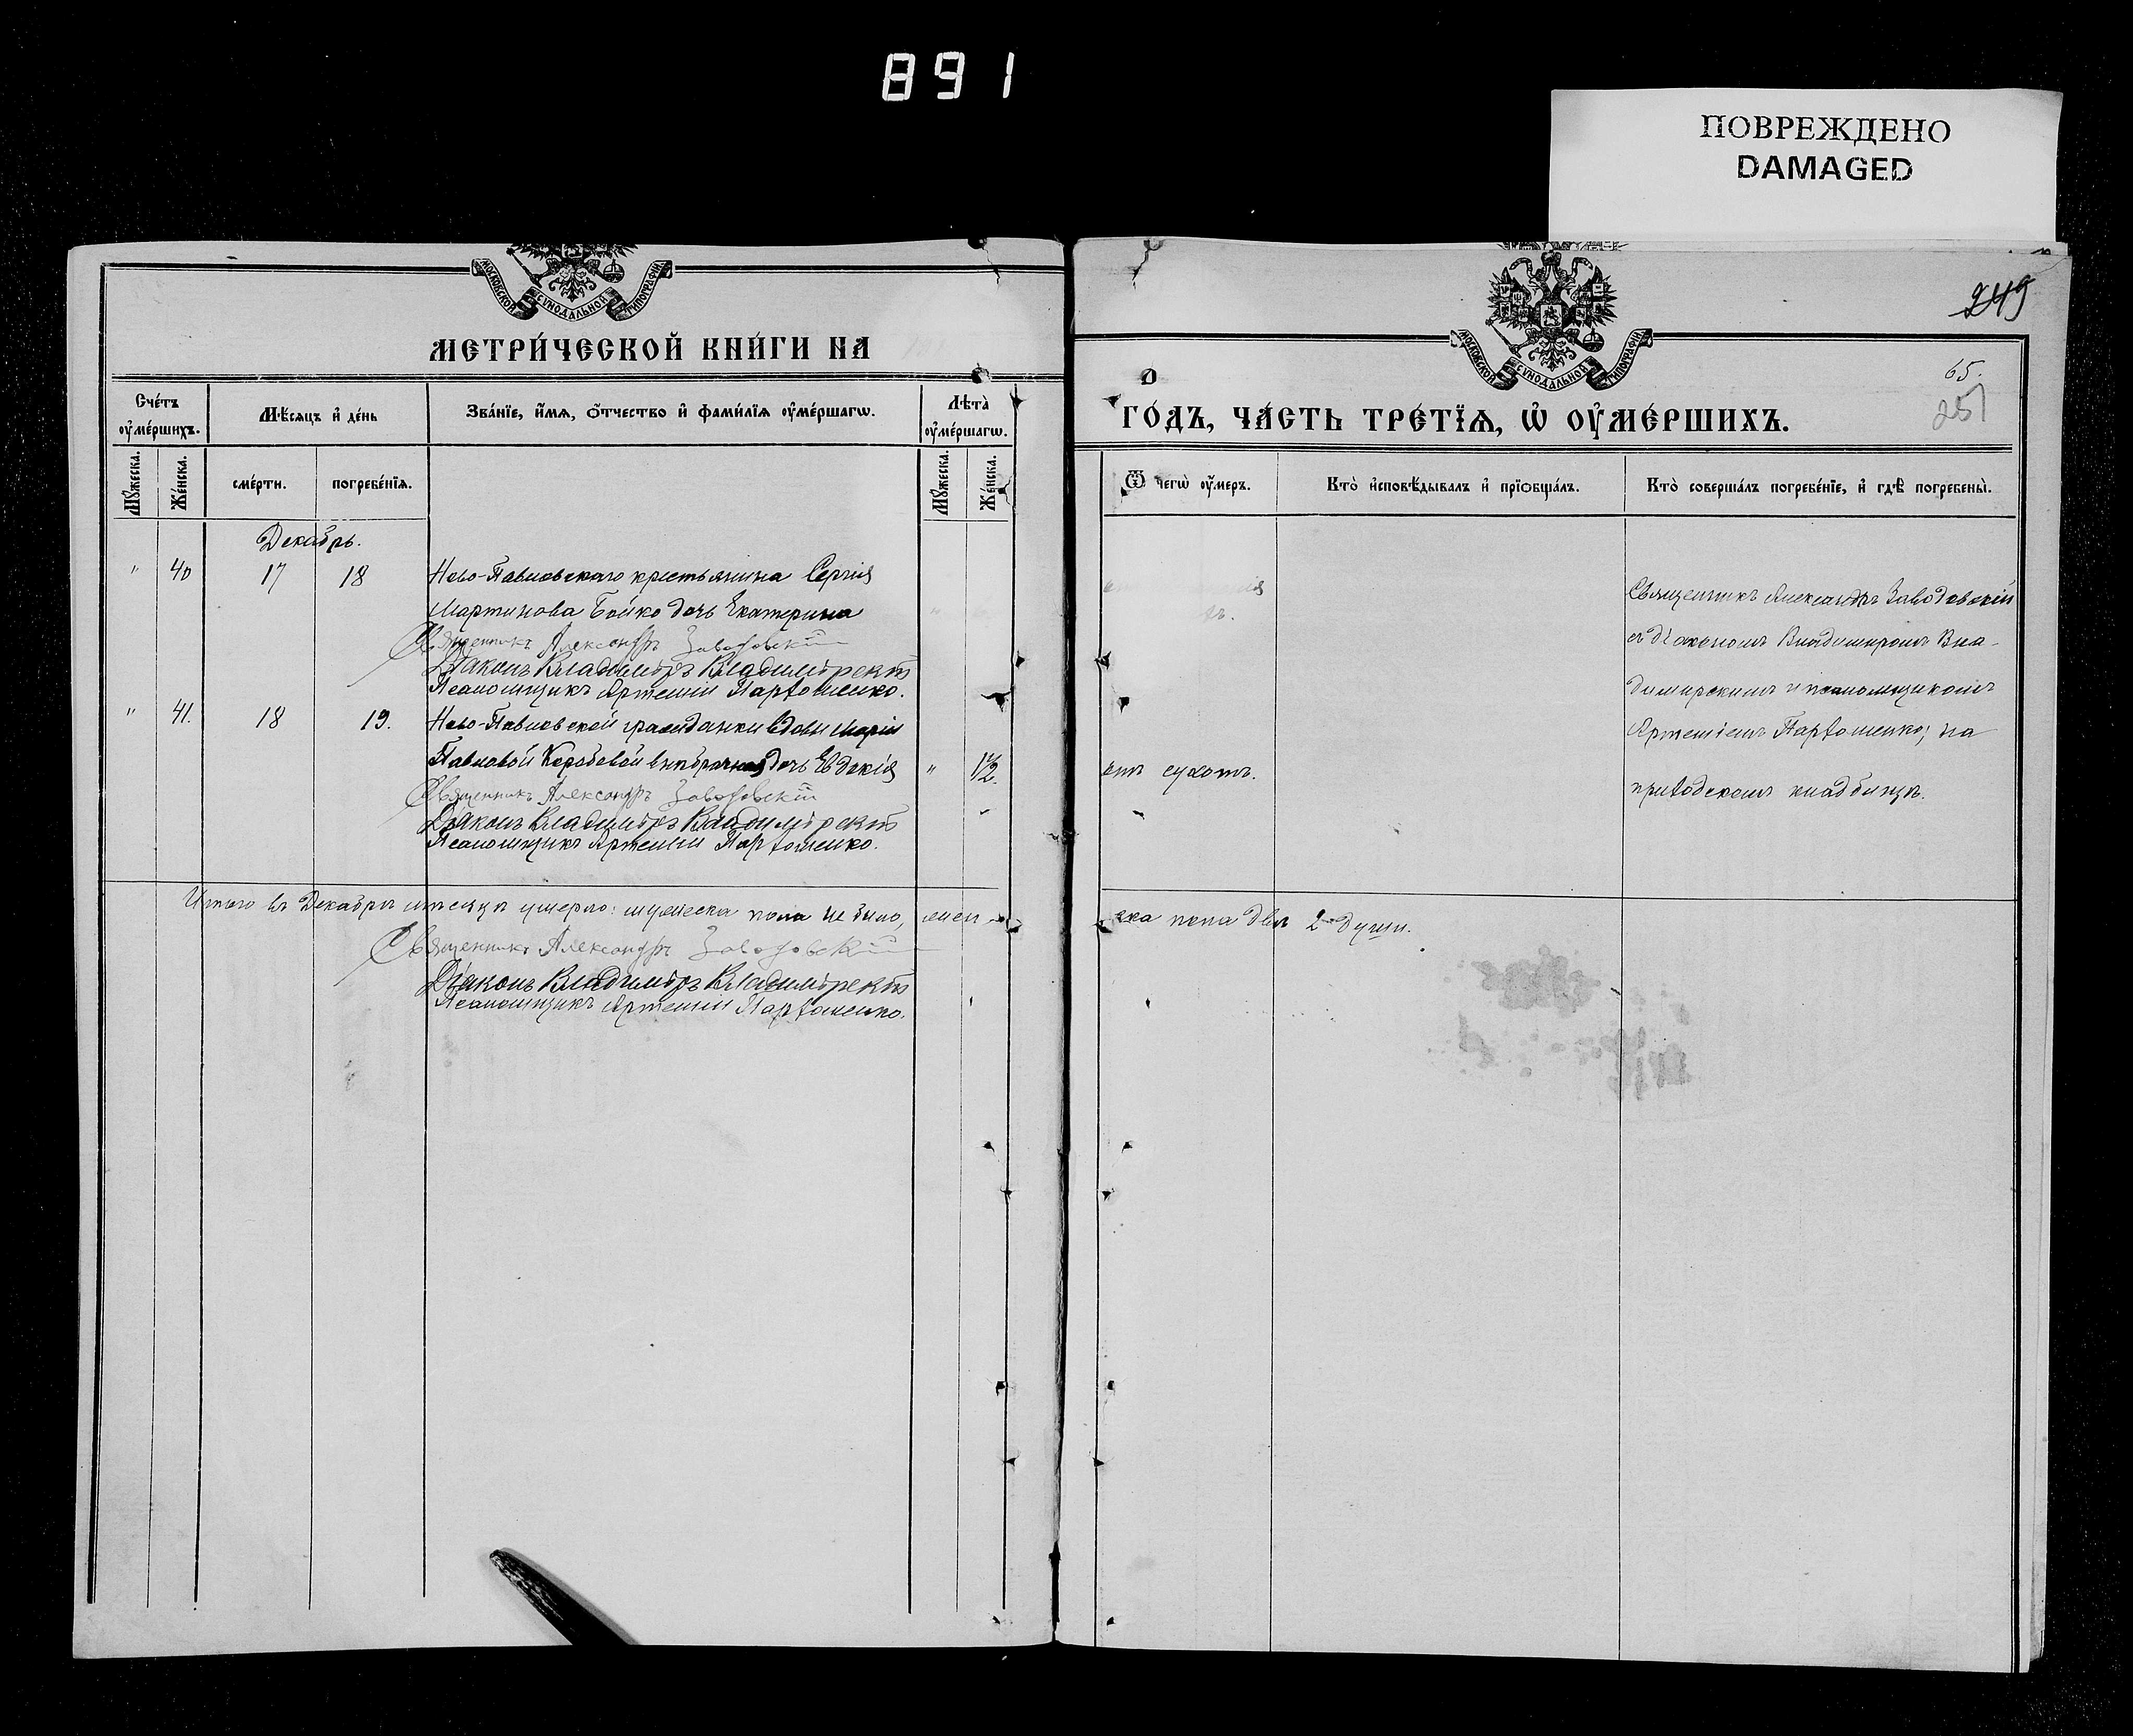 891
ПОВРЕЖДЕНО
DAMAGED
МОСКОВСКОЙ СѴНОДАЛЬНОЙ ТИПОГРАФІИ
МЕТРИ́ЧЕСКОЙ КНИ́ГИ НА
Сче́тъ оу҆ме́ршихъ.
Мѣ́сяцъ и҆ де́нь
Зва́нїе, и҆́мѧ, ѻ҆́тчество и҆ фами́лїѧ оу҆ме́ршагѡ.
Лѣта̀ оу҆ме́ршагѡ.
Мꙋ́жеска.
Же́нска.
сме́рти.
погребе́нїѧ.
Мꙋ́жеска.
Же́нска.
Декабрь.
" 40 17 18 Ново-Павловскаго крестьянина Сергія
Мартинова Бойко дочь Екатерина
Священникъ Александръ Заводовскій
Діаконъ Владиміръ Владимірскій
Псаломщикъ Артемій Парѳоменко.
" 41. 18 19. Ново-Павловской гражданки вдовы Маріи
Павловой Коробовой внебрачная дочь Евдокія " 1½.
Священникъ Александръ Заводовскій
Діаконъ Владиміръ Владимірскій
Псаломщикъ Артемій Парѳоменко.
Итого въ Декабрѣ мѣсяцѣ умерло: мужеска пола не было, жен-
Священникъ Александръ Заводовскій
Діаконъ Владиміръ Владимірскій
Псаломщикъ Артемій Парѳоменко.
249
МОСКОВСКОЙ СѴНОДАЛЬНОЙ ТИПОГРАФІИ
65.
251
ГО́ДЪ, ЧА́СТЬ ТРЕ́ТЇѦ, Ѡ҆ ОУ҆МЕ́РШИХЪ.
Ѿ чегѡ̀ оу҆́меръ.
Кто̀ и҆сповѣ́дывалъ и҆ прїѻбща́лъ.
Кто̀ соверша́лъ погребе́нїе, и҆ гдѣ̀ погребены̀.
Священникъ Александръ Заводовскій
съ діакономъ Владиміромъ Вла-
димірскимъ и псаломщикомъ
Артеміемъ Парѳоменко; на
отъ сухотъ.
приходскомъ кладбищѣ.
ска пола двѣ 2 души.